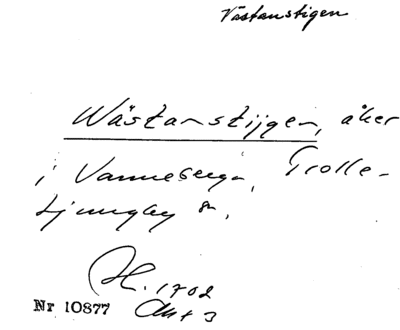 Västanstigen
Wästanstijgen, åker
i Vanneberga, Trolle-
Ljungby sn.
H. 1702
Akt 3
Nr 10877